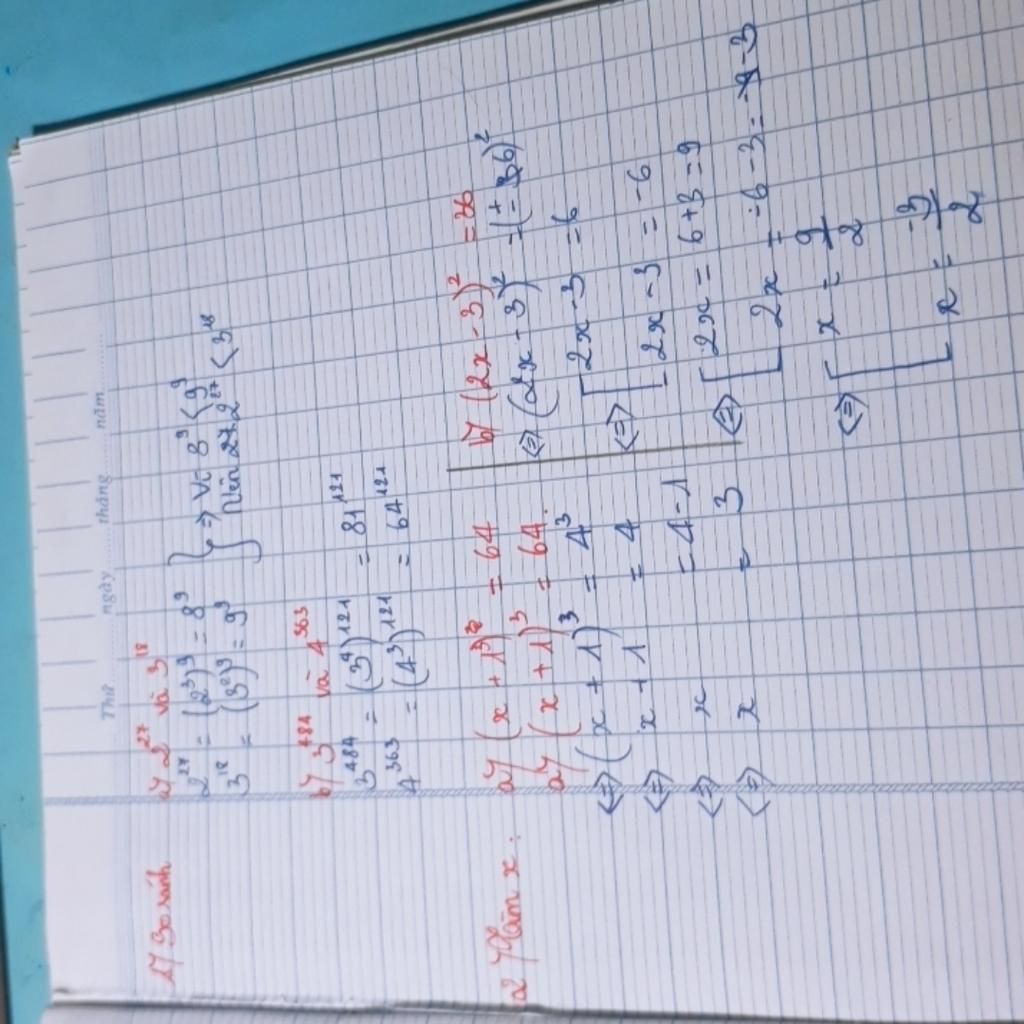 Thứ ngày tháng năm
1/ So sánh
a/ 2²⁷ và 3¹⁸
2²⁷ = (2³)⁹ = 8⁹
3¹⁸ = (3²)⁹ = 9⁹
} => Vì 8⁹ < 9⁹
Nên 2²⁷ < 3¹⁸
b/ 3⁴⁸⁴ và 4³⁶³
3⁴⁸⁴ = (3⁴)¹²¹ = 81¹²¹
4³⁶³ = (4³)¹²¹ = 64¹²¹
2/ Tìm x :
a/ (x + 1)³ = 64
a/ (x + 1)³ = 64.
<=> (x + 1)³ = 4³
<=> x + 1 = 4
<=> x = 4 - 1
<=> x = 3
b/ (2x - 3)² = 36
<=> (2x - 3)² = (±6)²
<=> [ 2x - 3 = 6
2x - 3 = -6
<=> [ 2x = 6+3 = 9
2x = -6 - 3 = -3
<=> [ x = 9/2
x = -3/2